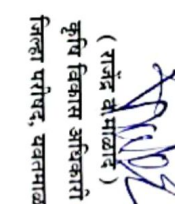 ( राजेंद्र वा.माळोदे )
कृषि विकास अधिकारी
जिल्हा परीषद, यवतमाळ